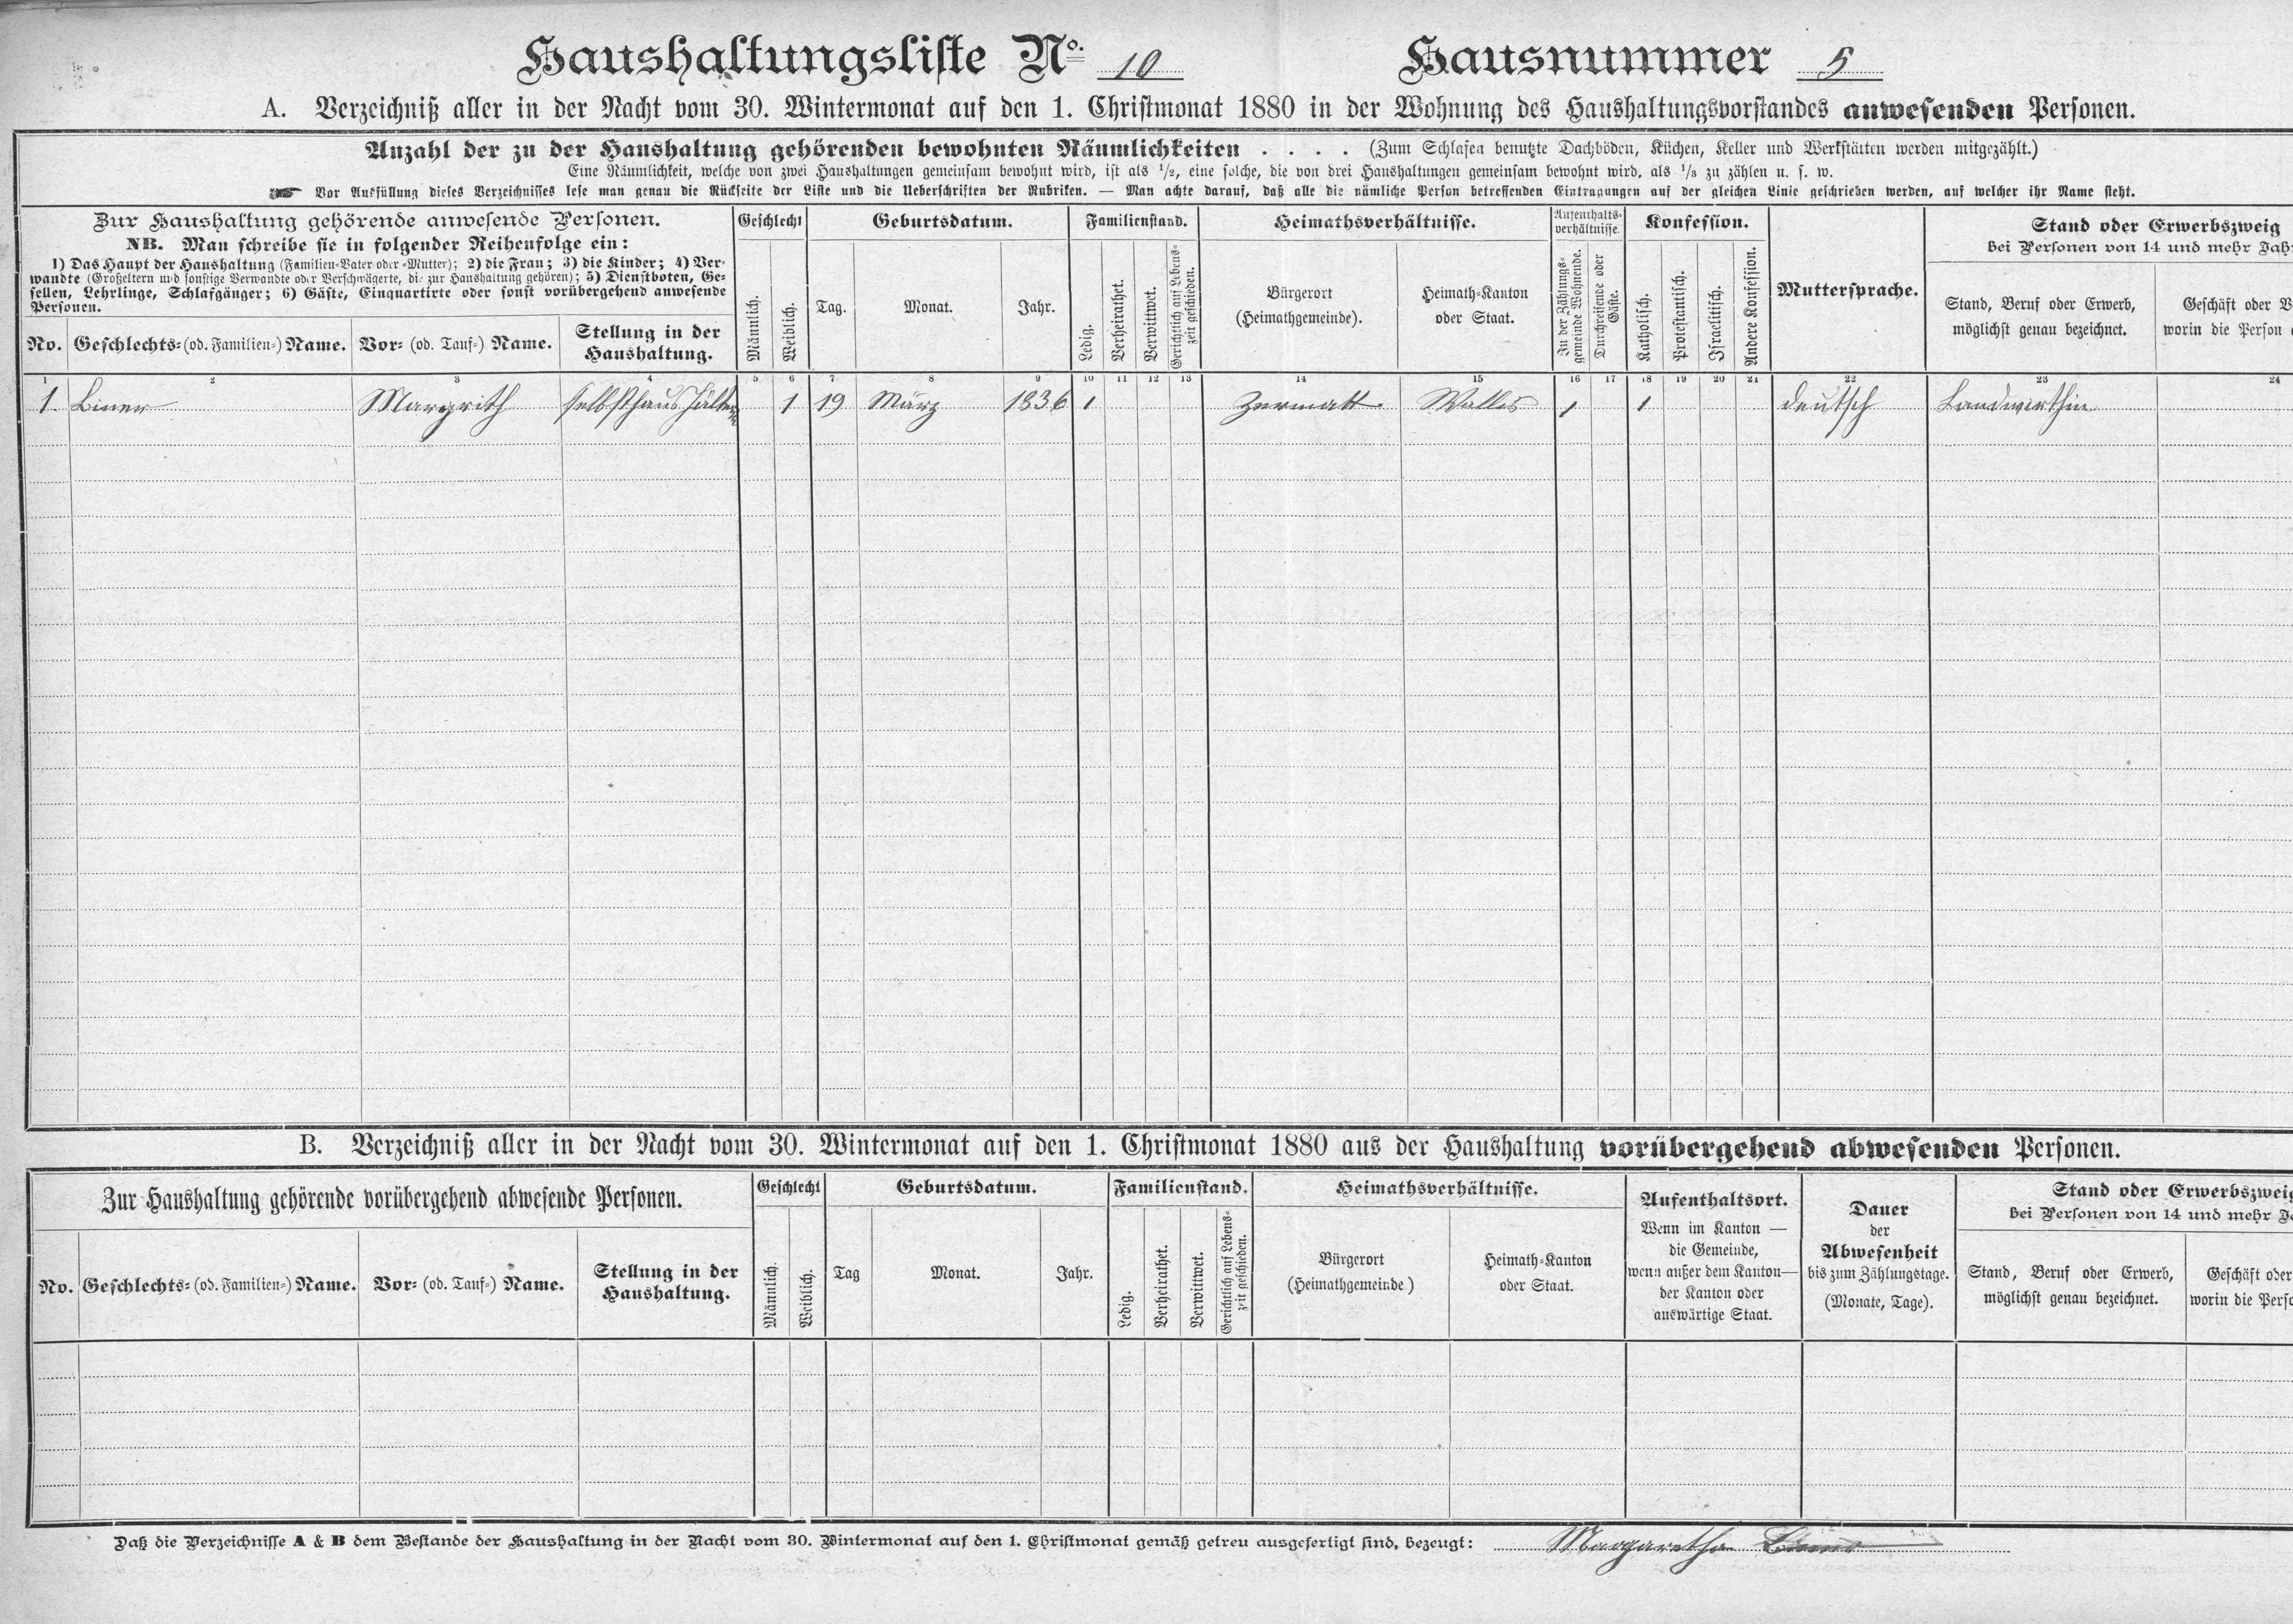 Haushaltungsliste No. 10 Hausnummer 5
A. Verzeichniß aller in der Nacht vom 30. Wintermonat auf den 1. Christmonat 1880 in der Wohnung des Haushaltungsvorstandes anwesenden Personen.
Anzahl der zu der Haushaltung gehörenden bewohnten Räumlichkeiten . . . . (Zum Schlafen benutzte Dachböden, Küchen, Keller und Werkstätten werden mitgezählt.)
Eine Räumlichkeit, welche von zwei Haushaltungen gemeinsam bewohnt wird, ist als 1/2, eine solche, die von drei Haushaltungen gemeinsam bewohnt wird, als 1/3 zu zählen u. s. w.
Vor Ausfüllung dieses Verzeichnisses lese man genau die Rückseite der Liste und die Ueberschriften der Rubriken. — Man achte darauf, daß alle die nämliche Person betreffenden Eintragungen auf der gleichen Linie geschrieben werden, auf welcher ihr Name steht.
Zur Haushaltung gehörende anwesende Personen.
NB. Man schreibe sie in folgender Reihenfolge ein:
1) Das Haupt der Haushaltung (Familien-Vater oder -Mutter); 2) die Frau; 3) die Kinder; 4) Ver-
wandte (Großeltern und sonstige Verwandte oder Verschwägerte, die zur Haushaltung gehören); 5) Dienstboten, Ge-
sellen, Lehrlinge, Schlafgänger; 6) Gäste, Einquartirte oder sonst vorübergehend anwesende
Personen.
No. Geschlechts- (od. Familien-) Name. Vor- (od. Tauf-) Name. Stellung in der
Haushaltung.
Geschlecht
Männlich. Weiblich.
Geburtsdatum.
Tag. Monat. Jahr.
Familienstand.
Ledig. Verheirathet. Verwittwet. Gerichtlich auf Lebens-
zeit geschieden.
Heimathsverhältnisse.
Bürgerort
(Heimathgemeinde).
Heimath-Kanton
oder Staat.
Aufenthalts-
verhältnisse.
In der Zählungs-
gemeinde Wohnende.
Durchreisende oder
Gäste.
Konfession.
Katholisch. Protestantisch. Israelitisch. Andere Konfession.
Muttersprache.
Stand oder Erwerbszweig
bei Personen von 14 und mehr Jah
Stand, Beruf oder Erwerb,
möglichst genau bezeichnet.
Geschäft oder
worin die Person
1 2 3 4 5 6 7 8 9 10 11 12 13 14 15 16 17 18 19 20 21 22 23 24
1. Biner Margrith 1 19 März 1836 1 Zermatt Wallis 1 1 deutsch Landwirthin
B. Verzeichniß aller in der Nacht vom 30. Wintermonat auf den 1. Christmonat 1880 aus der Haushaltung vorübergehend abwesenden Personen.
Zur Haushaltung gehörende vorübergehend abwesende Personen.
No. Geschlechts- (od. Familien-) Name. Vor- (od. Tauf-) Name. Stellung in der
Haushaltung.
Geschlecht
Männlich. Weiblich.
Geburtsdatum.
Tag Monat. Jahr.
Familienstand.
Ledig. Verheirathet. Verwittwet. Gerichtlich auf Lebens-
zeit geschieden.
Heimathsverhältnisse.
Bürgerort
(Heimathgemeinde)
Heimath-Kanton
oder Staat.
Aufenthaltsort.
Wenn im Kanton —
die Gemeinde,
wenn außer dem Kanton —
der Kanton oder
auswärtige Staat.
Dauer
der
Abwesenheit
bis zum Zählungstage.
(Monate, Tage).
Stand oder Erwerbszweig
bei Personen von 14 und mehr
Stand, Beruf oder Erwerb,
möglichst genau bezeichnet.
Geschäft oder
worin die Perso
Daß die Verzeichnisse A & B dem Bestande der Haushaltung in der Nacht vom 30. Wintermonat auf den 1. Christmonat gemäß getreu ausgefertigt sind, bezeugt: Margaretha Biner